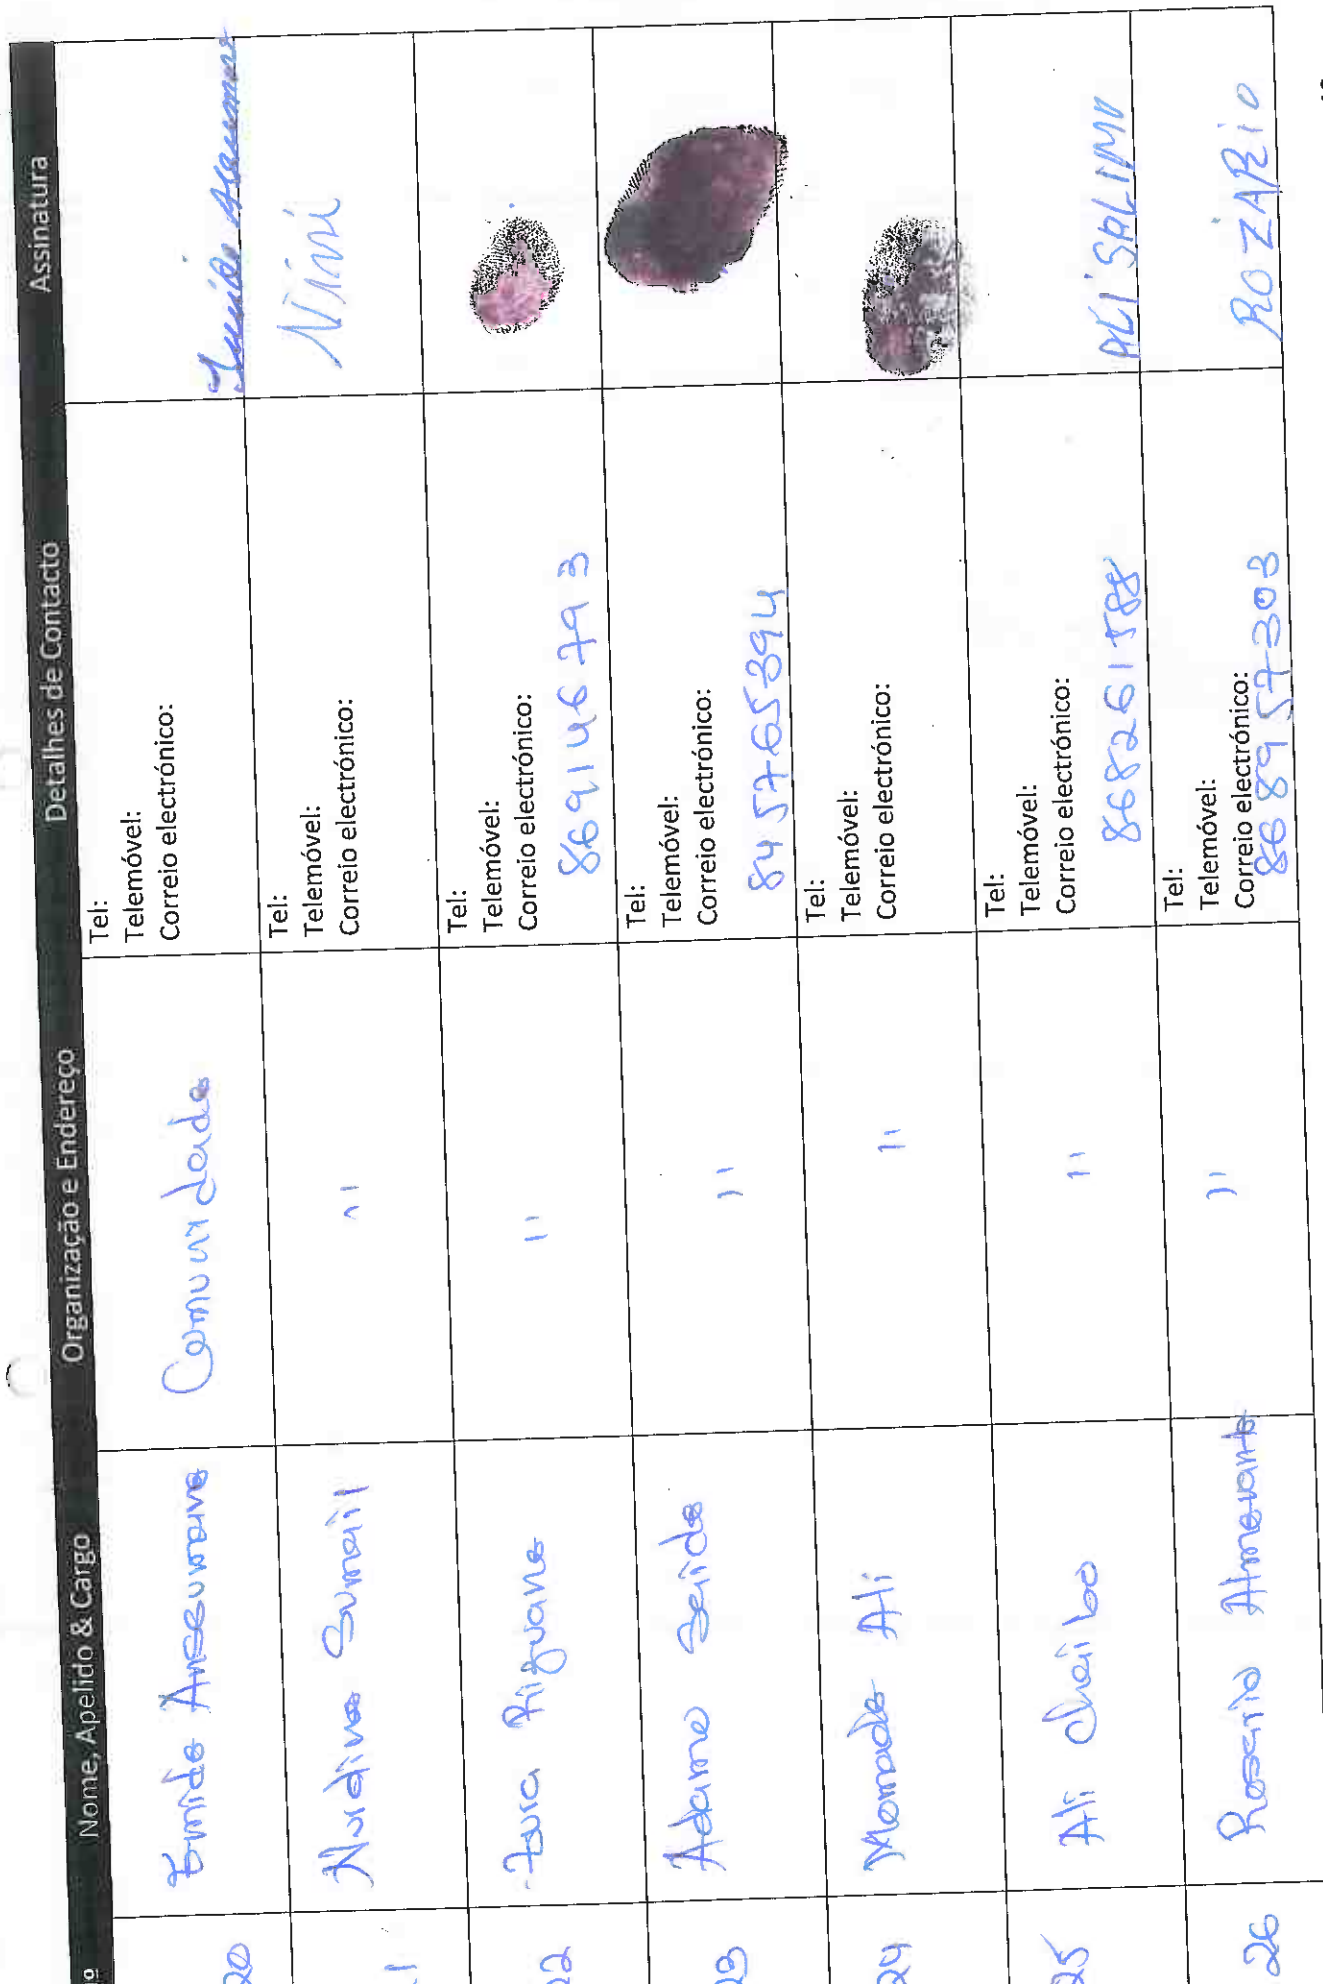 º Nome, Apelido & Cargo Organização e Endereço Detalhes de Contacto Assinatura
20 Amide Anssumane Comunidade Tel:
Telemóvel:
Correio electrónico:
1 Nurdine Sumail 11 Tel:
Telemóvel:
Correio electrónico:
Nini
22 Zura 11 Tel:
Telemóvel:
Correio electrónico:
869146793
23 Adamo Saide 11 Tel:
Telemóvel:
Correio electrónico:
845765394
24 Momade Ali 11 Tel:
Telemóvel:
Correio electrónico:
25 Ali Chaibo 11 Tel:
Telemóvel:
Correio electrónico:
868261588
ALI SALIMO
26 Rosario 11 Tel:
Telemóvel:
Correio electrónico:
868957303
ROZARIO